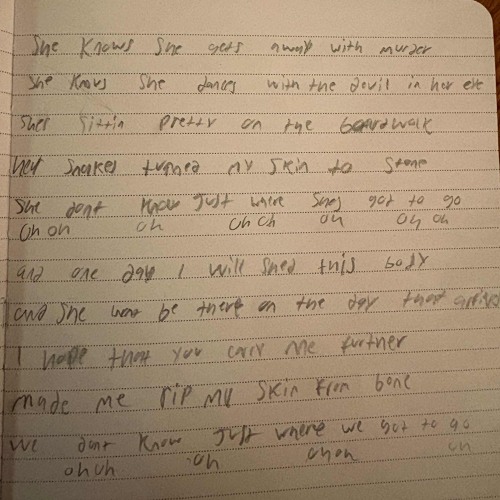 She knows she gets away with murder
She knows she dances with the devil in her eye
Shes sittin pretty on the boardwalk
hey snakes turned my skin to stone
She dont know just where shes got to go
Oh oh oh oh oh oh oh oh
and one day I will shed this body
and she wont be there on the day that arrives
I hope that you carry me further
made me rip my skin from bone
we dont know just where we got to go
oh oh oh oh oh oh